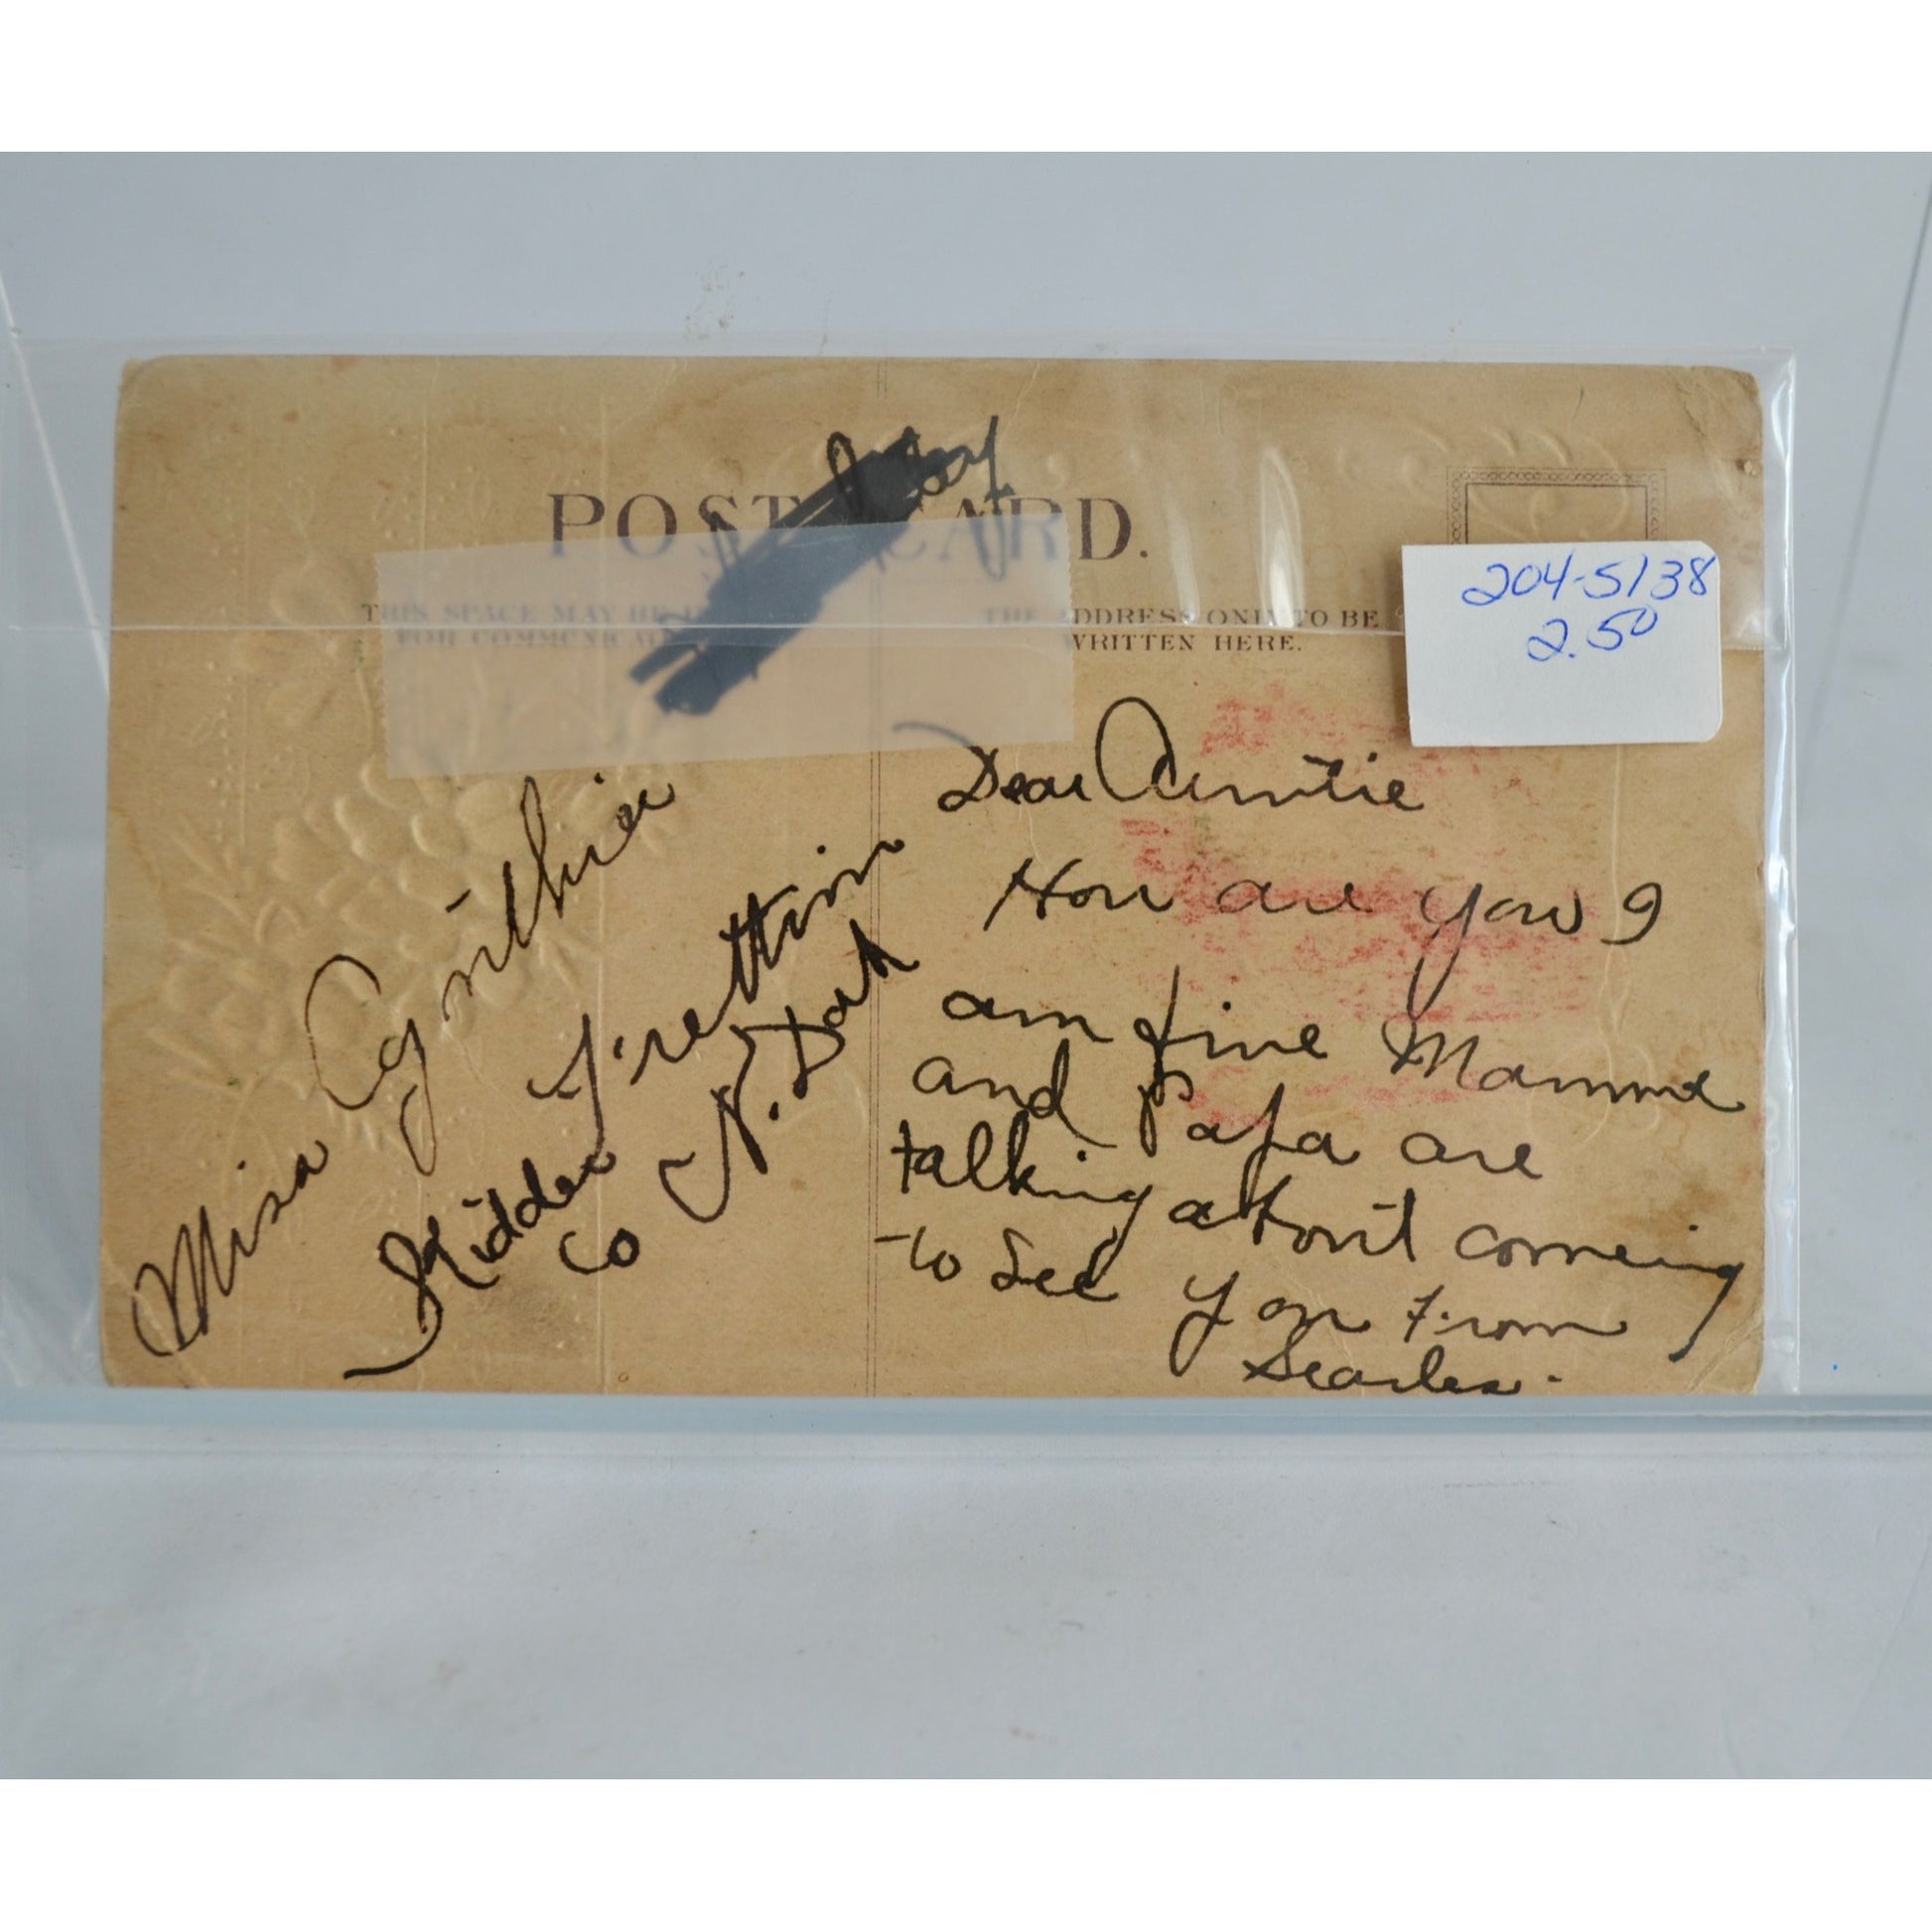 POST CARD.
THIS SPACE MAY BE
FOR COMMUNICA
THE ADDRESS ONLY TO BE
WRITTEN HERE.
204-5138
2.50
Miss Cynthia
Kidder
Co
N. Dak
Dear Auntie
How are you I
am fine Mamma
and Papa are
talking about comeing
to See you From